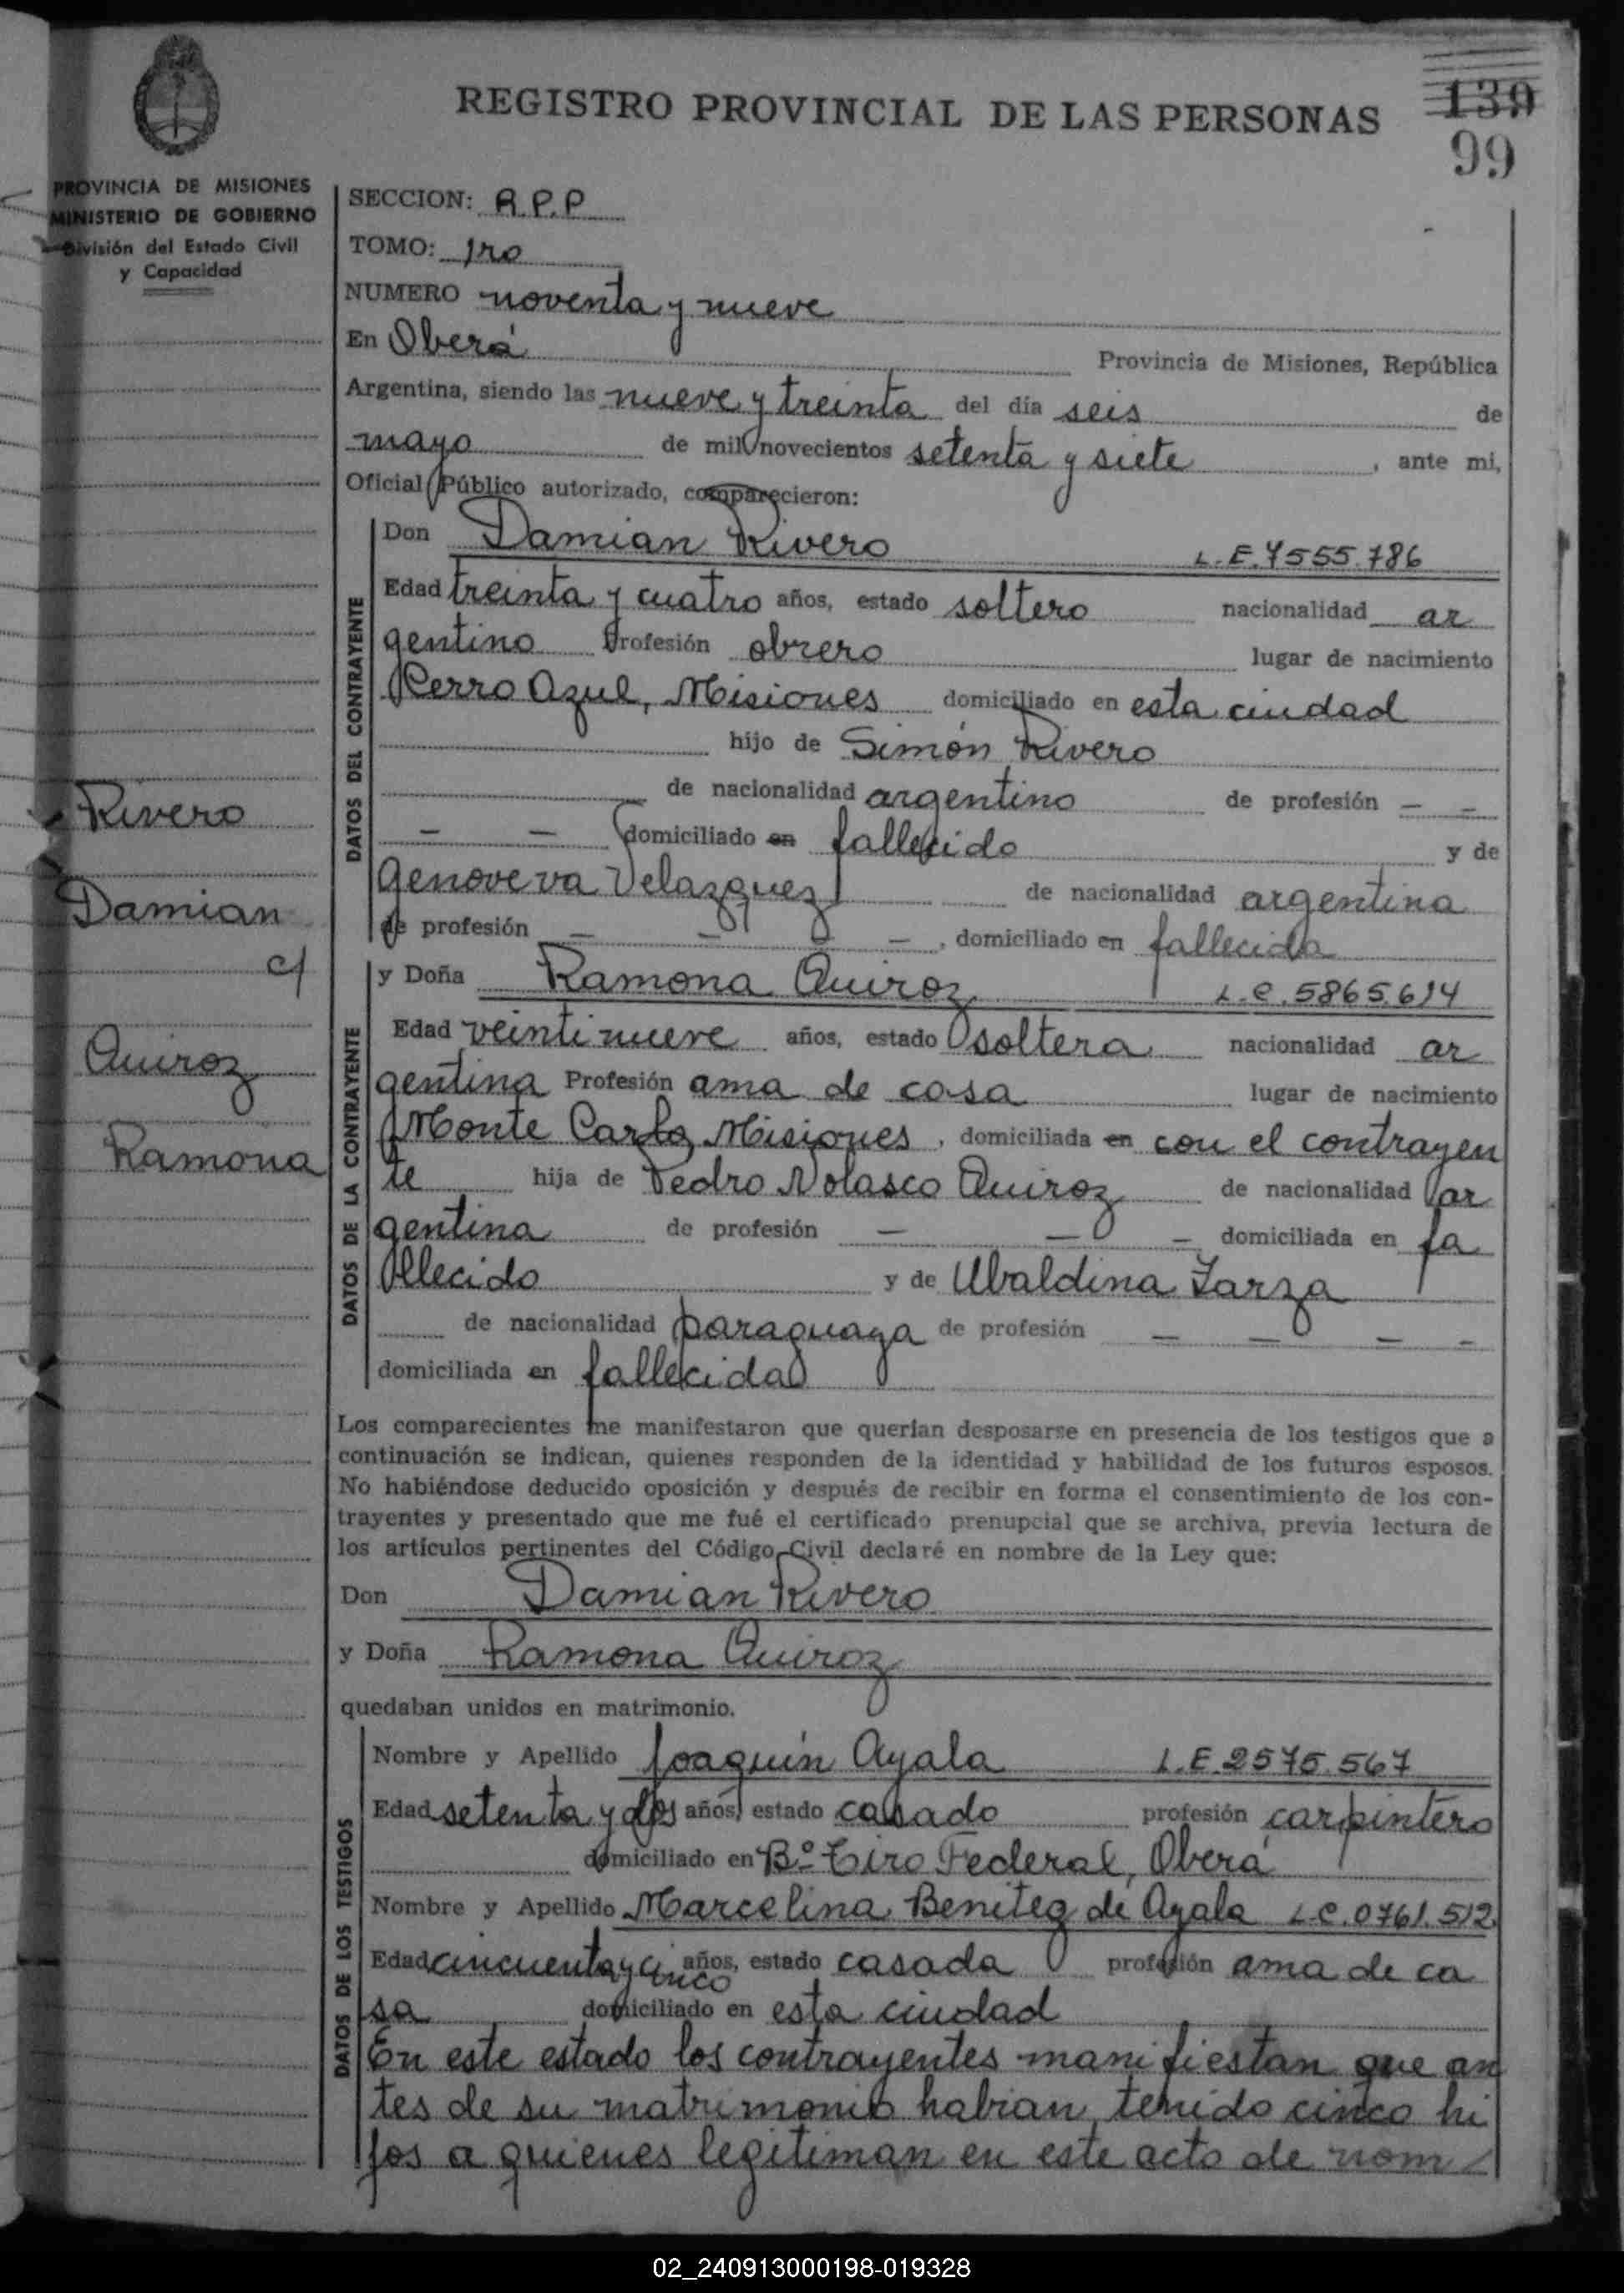 REGISTRO PROVINCIAL DE LAS PERSONAS
139
99
PROVINCIA DE MISIONES
MINISTERIO DE GOBIERNO
División del Estado Civil
y Capacidad
SECCION: R.P.P
TOMO: 1ro
NUMERO noventa y nueve
En Oberá Provincia de Misiones, República
Argentina, siendo las nueve y treinta del día seis de
mayo de mil novecientos setenta y siete, ante mi,
Oficial Público autorizado, comparecieron:
DATOS DEL CONTRAYENTE
Don Damian Rivero L.E. 7555.786
Edad treinta y cuatro años, estado soltero nacionalidad ar
gentino Profesión obrero lugar de nacimiento
Cerro Azul, Misiones domiciliado en esta ciudad
hijo de Simón Rivero
de nacionalidad argentino de profesión — —
— — domiciliado en fallecido y de
Genoveva Velazquez de nacionalidad argentina
de profesión — — — —, domiciliado en fallecida
Rivero
Damian
c/
Quiroz
Ramona
DATOS DE LA CONTRAYENTE
y Doña Ramona Quiroz L.C. 5865.614
Edad veintinueve años, estado soltera nacionalidad ar
gentina Profesión ama de casa lugar de nacimiento
Monte Carlo, Misiones, domiciliada en con el contrayen
te hija de Pedro Nolasco Quiroz de nacionalidad ar
gentina de profesión — — — domiciliada en fa
llecido y de Ubaldina Zarza
de nacionalidad paraguaya de profesión — — — —
domiciliada en fallecida
Los comparecientes me manifestaron que querían desposarse en presencia de los testigos que a
continuación se indican, quienes responden de la identidad y habilidad de los futuros esposos.
No habiéndose deducido oposición y después de recibir en forma el consentimiento de los con-
trayentes y presentado que me fué el certificado prenupcial que se archiva, previa lectura de
los artículos pertinentes del Código Civil declaré en nombre de la Ley que:
Don Damian Rivero
y Doña Ramona Quiroz
quedaban unidos en matrimonio.
DATOS DE LOS TESTIGOS
Nombre y Apellido Joaquín Ayala L.E. 2575.567
Edad setenta y dos años, estado casado profesión carpintero
domiciliado en Bº Tiro Federal, Oberá
Nombre y Apellido Marcelina Benitez de Ayala L.C. 0761.512
Edad cincuenta y cinco años, estado casada profesión ama de ca
sa domiciliado en esta ciudad
En este estado los contrayentes manifiestan que an
tes de su matrimonio habian tenido cinco hi
jos a quienes legitiman en este acto de nom
02_240913000198-019328